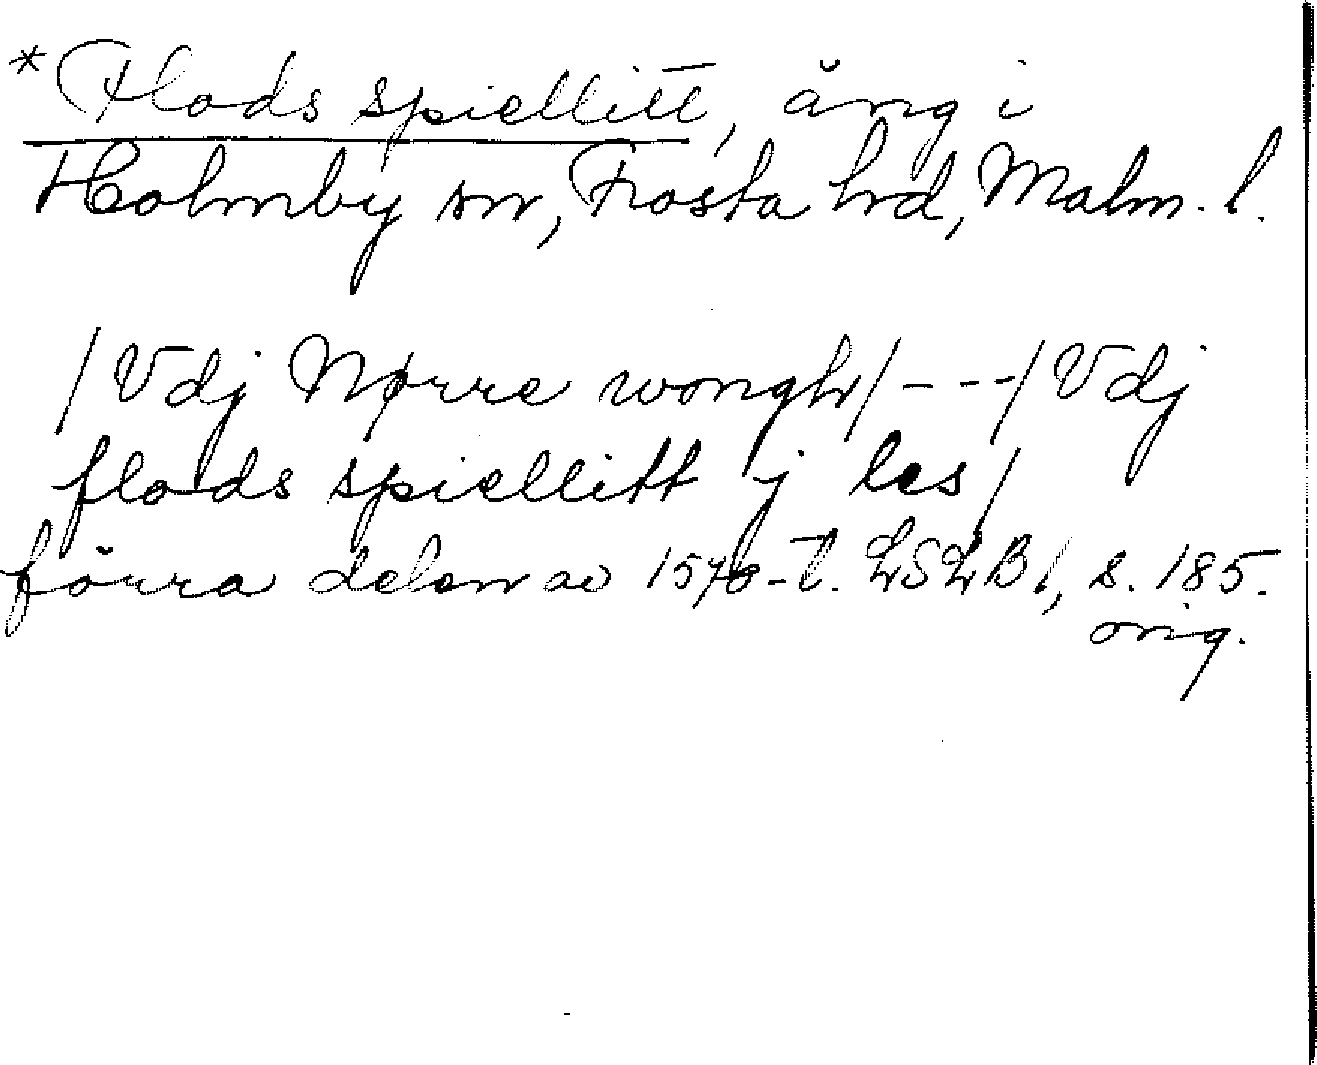 * Flads spiellitt, äng i
Holmby sn, Frosta hd, Malm. l.
/Vdj Nørre wongh/---/Vdj
flads spiellitt j les/
förra delen av 1570-t. LSLB 1, s. 185.
orig.